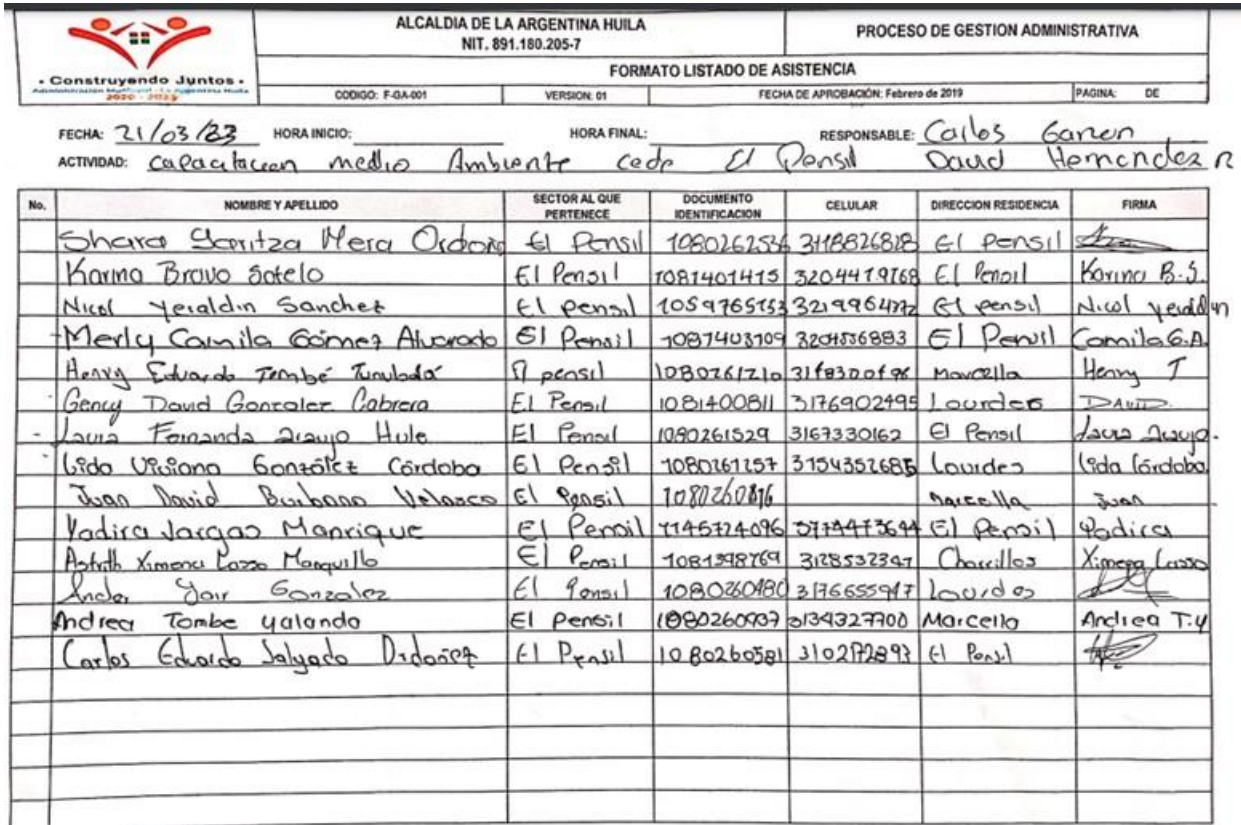 ALCALDIA DE LA ARGENTINA HUILA
NIT. 891.180.205-7
PROCESO DE GESTION ADMINISTRATIVA
• Construyendo Juntos •
Administración Municipal - La Argentina Huila
2020 - 2023
FORMATO LISTADO DE ASISTENCIA
CODIGO: F-GA-001 VERSION: 01 FECHA DE APROBACIÓN: Febrero de 2019 PAGINA: DE
FECHA: 21/03/23 HORA INICIO: HORA FINAL: RESPONSABLE: Carlos Garzon
ACTIVIDAD: Capacitacion medio Ambiente cede El Pensil David Hernandez R
No. NOMBRE Y APELLIDO SECTOR AL QUE PERTENECE DOCUMENTO IDENTIFICACION CELULAR DIRECCION RESIDENCIA FIRMA
Shara Yaritza Mera Ordoñ El Pensil 1080262536 3118826828 El Pensil
Karina Bravo Sotelo El Pensil 1081401415 3204419768 El Pensil Karina B.S.
Nicol Yeraldin Sanchez El pensil El pensil Nicol yeraldin
Merly Camila Gómez Alvarado El Pensil 1081403109 El Pensil Camila G.A.
Henry Eduardo Tombé Tunubalá El pensil 1080261210 Marcella Henry T
Gency David Gonzalez Cabrera El Pensil 1081400811 3176902495 Lourdes DAVID
Laura Fernanda Araujo Hule El Pensil 1080261529 3167330162 El Pensil Laura Araujo.
Lida Viviana González Córdoba El Pensil 1080261257 3154352685 Lourdes Lida Córdoba
Juan David Burbano Velasco El Pensil 1080260816 Marcella Juan
Yadira Vargas Manrique El Pensil 1145724096 El Pensil Yadira
Astrith Ximena Lasso Manquillo El Pensil 1081398769 3128532347 Chorrillos Ximena Lasso
Ander Yair Gonzalez El Pensil 3176655947 Lourdes
Andrea Tombe yalanda El Pensil 1080260937 3134327700 Marcella Andrea T.y
Carlos Eduardo Salgado Ordoñez El Pensil 1080260581 El Pensil